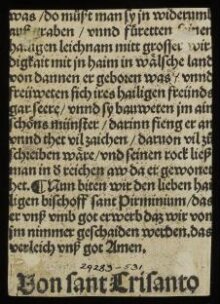 was/do müßt man sy jn widerumb
auß graben/vnnd füretten seinen
hailigen leichnam mitt grosser wir
digkait mit jn haim in wälsche land
von dannen er geboren was/vnnd
freüweten sich ires hailigen freünds
gar seere/vnnd sy bauweten jm ain
schöns münster/darinn fieng er an
vnnd thet vil zaichen/daruon vil zů
schreiben wäre/vnd seinen rock ließ
man in d reichen aw da er gewonet
het. ¶Nun biten wir den lieben hai
ligen bischoff sant Pirminium/das
er vnß vmb got erwerb daz wir von
jm nimmer geschaiden werden. das
verleich vnß got Amen.
29283-531
Von sant Crisanto